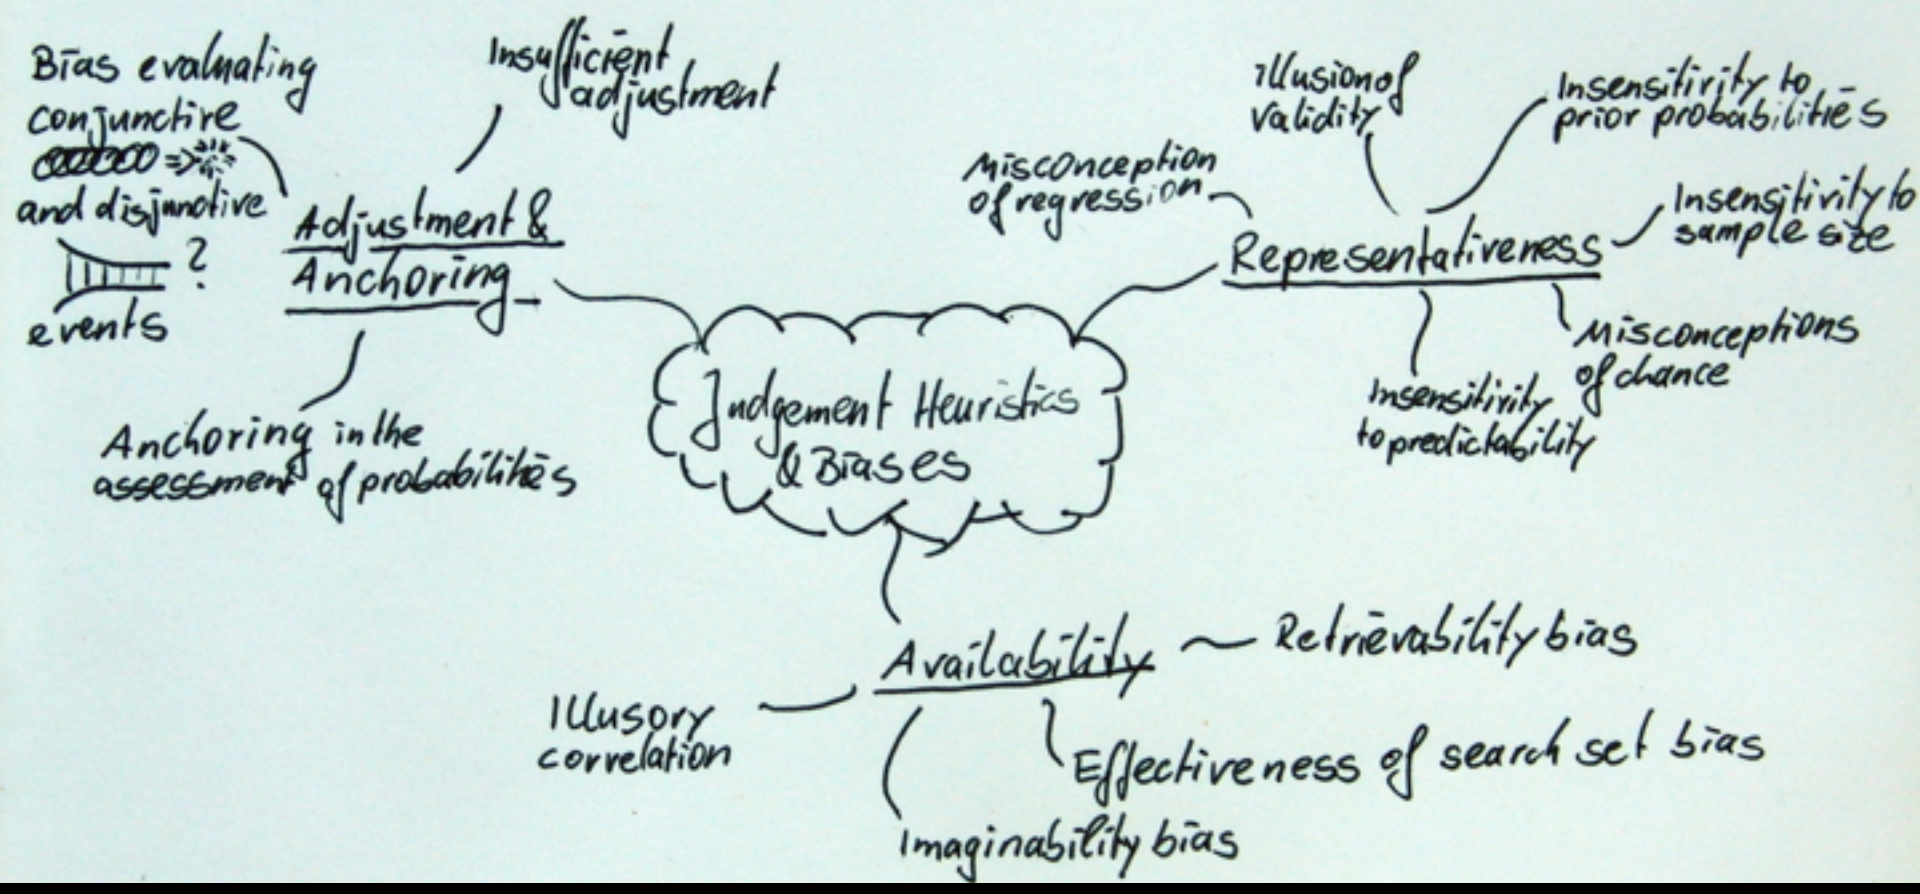 Bias evaluating
conjunctive
and disjunctive
?
events
Insufficient
adjustment
Adjustment &
Anchoring
Anchoring in the
assessment of probabilities
Judgement Heuristics
& Biases
Misconception
of regression
Illusion of
validity
Insensitivity to
prior probabilities
Insensitivity to
sample size
Representativeness
Misconceptions
of chance
Insensitivity
to predictability
Availability
Retrievability bias
Illusory
correlation
Effectiveness of search set bias
Imaginability bias